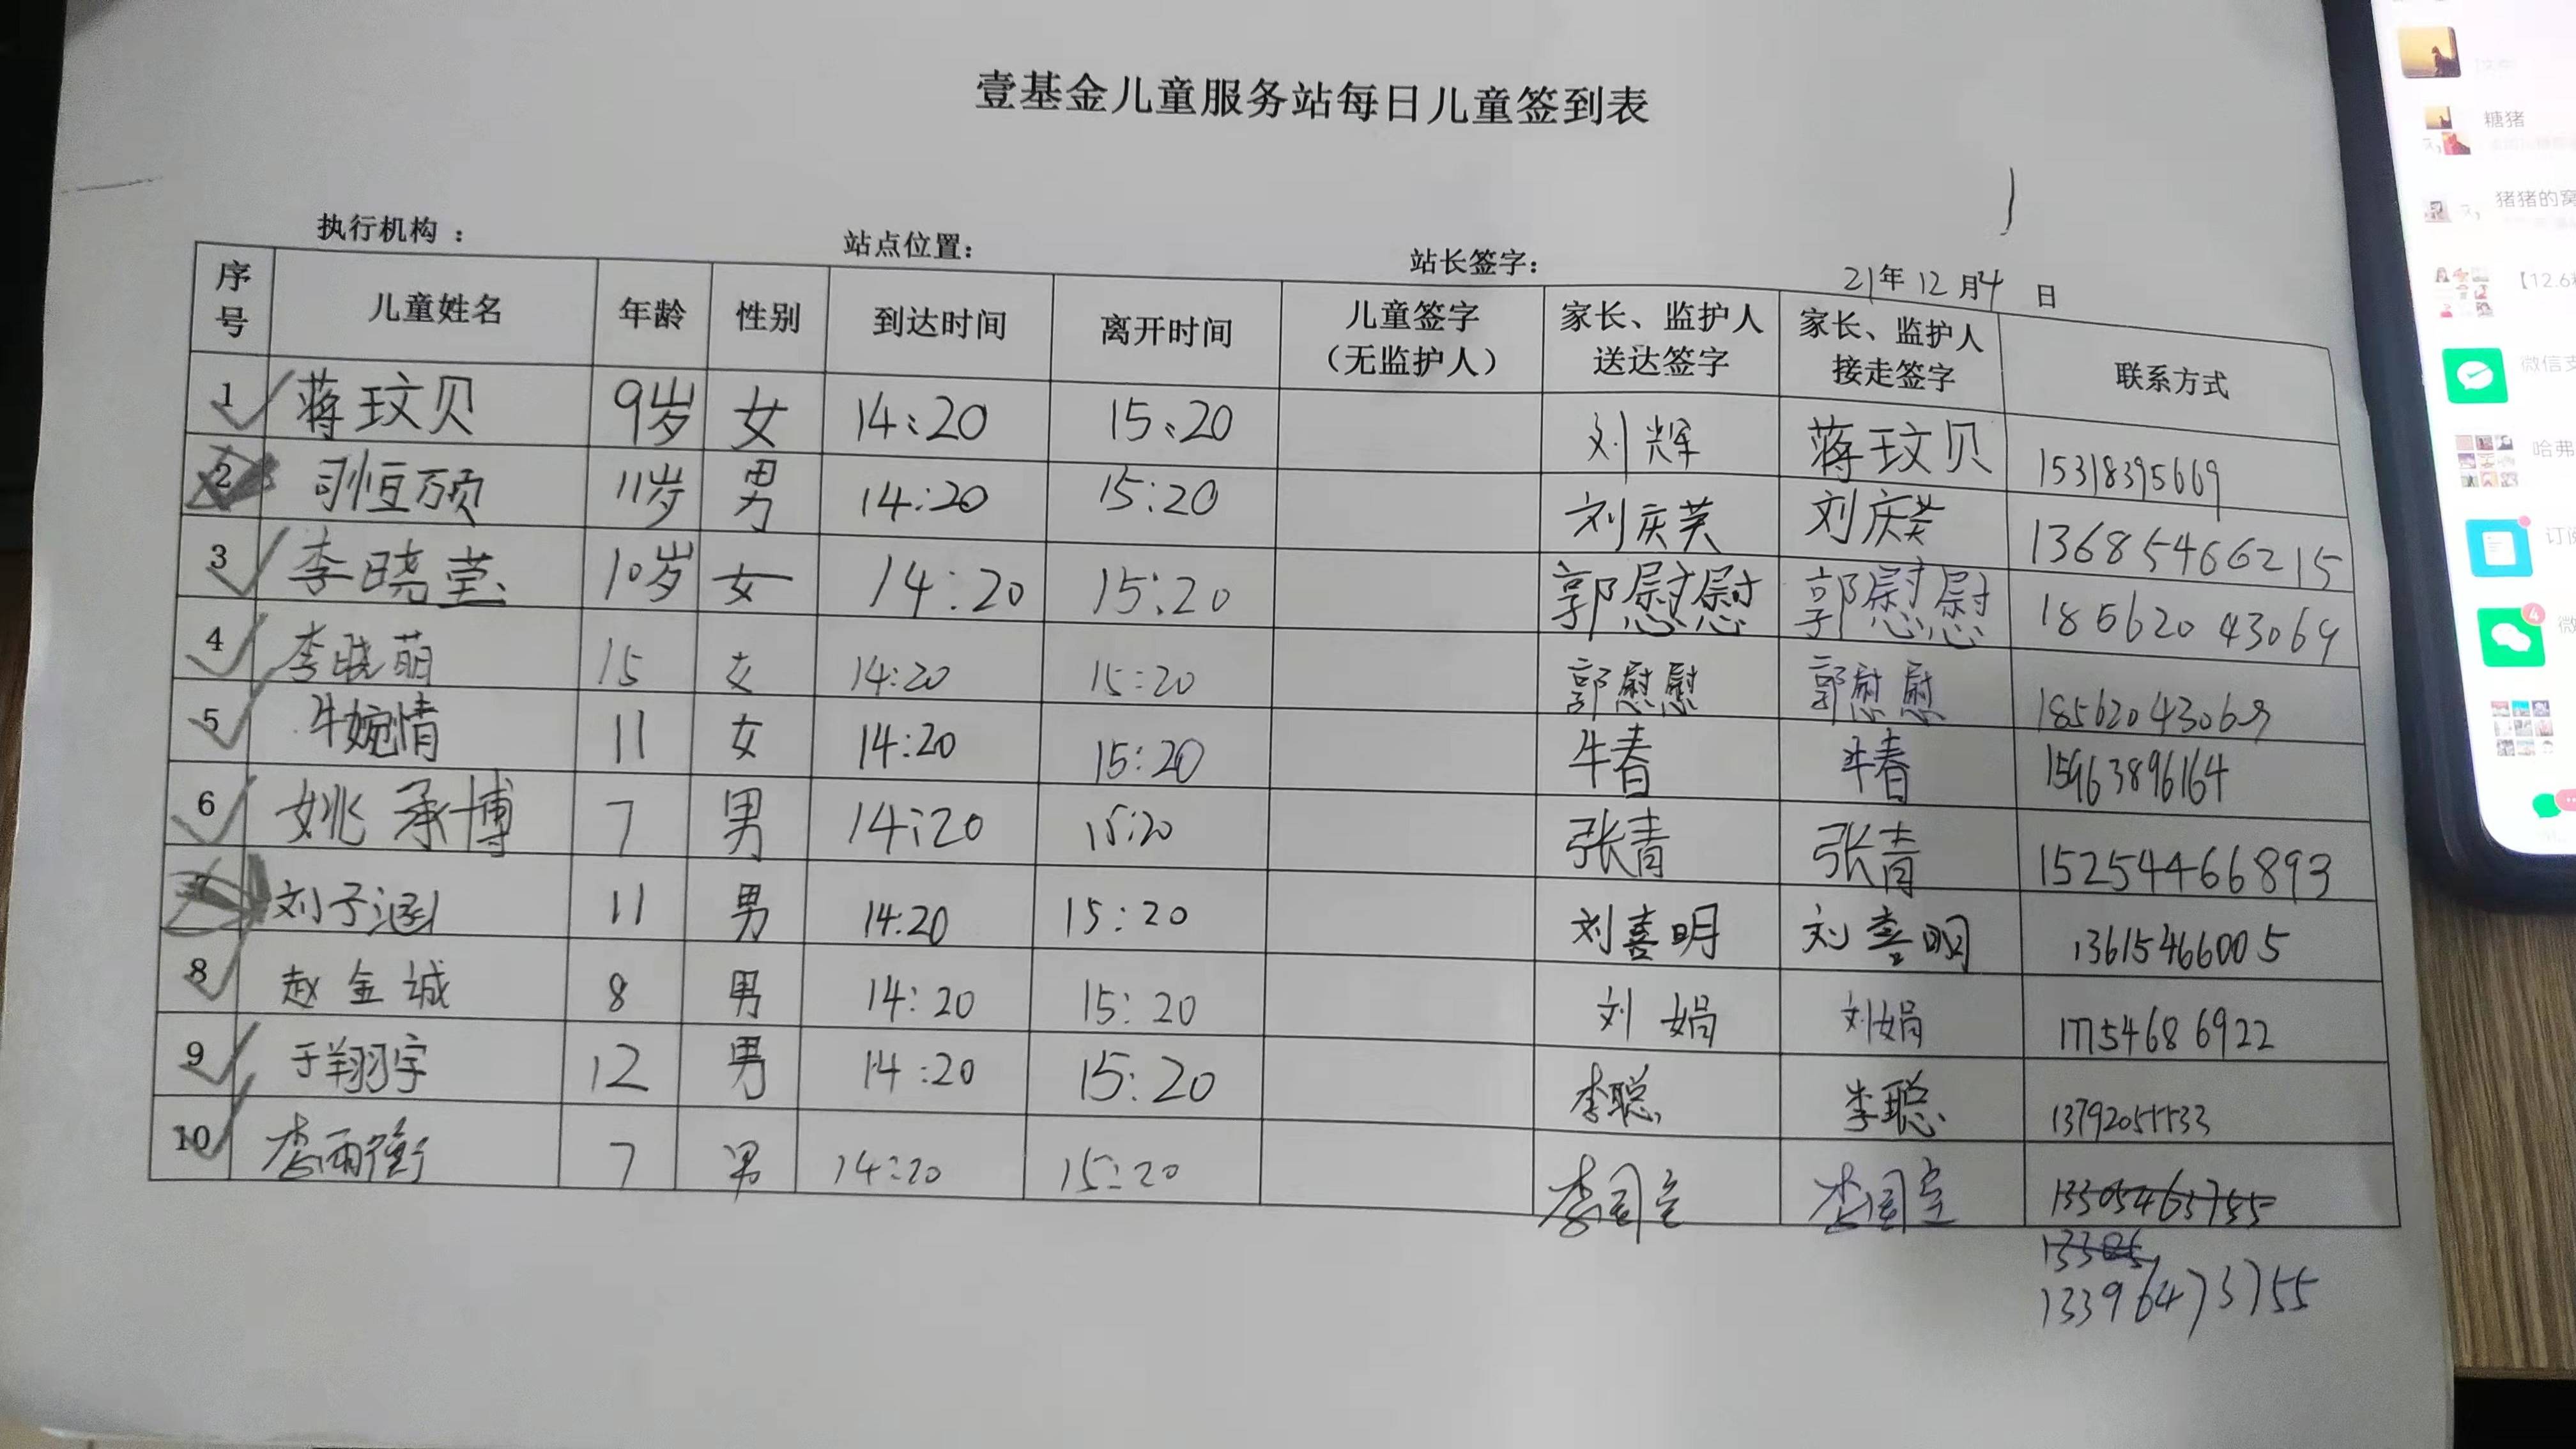 壹基金儿童服务站每日儿童签到表
执行机构： 站点位置： 站长签字： 21年12月4日
序号 儿童姓名 年龄 性别 到达时间 离开时间 儿童签字（无监护人） 家长、监护人送达签字 家长、监护人接走签字 联系方式
1 蒋玟贝 9岁 女 14:20 15:20 刘辉 蒋玟贝 15318395669
2 11岁 男 14:20 15:20 刘庆芙 刘庆芙 13685466215
3 李晓莹 10岁 女 14:20 15:20 郭慰慰 郭慰慰 18562043069
4 李晓萌 15 女 14:20 15:20 郭慰慰 郭慰慰 18562043069
5 牛婉情 11 女 14:20 15:20 牛春 牛春 15963896164
6 姚承博 7 男 14:20 15:20 张青 张青 15254466893
7 刘子涵 11 男 14:20 15:20 刘喜明 刘喜明 13615466005
8 赵金诚 8 男 14:20 15:20 刘娟 刘娟 17754686922
9 于翔宇 12 男 14:20 15:20 李聪 李聪 13792055533
10 李雨衡 7 男 14:20 15:20 13305465755
13396473755
糖猪
猪猪的窝
【12.6
微信支
哈弗
订阅
4